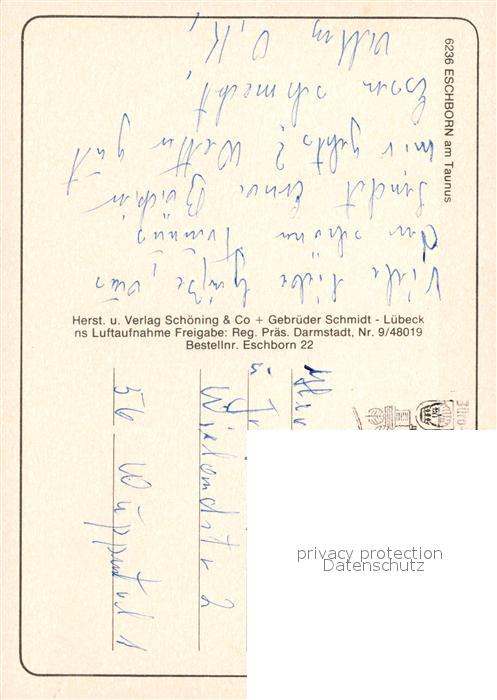 6236 ESCHBORN am Taunus
Viele liebe Grüße, aus
dem schönen Taunus
sendet Erna Böchin
mir gehts? Wetter gut
Essen schmeckt,
O, K,
Herst. u. Verlag Schöning & Co + Gebrüder Schmidt - Lübeck
ns Luftaufnahme Freigabe: Reg. Präs. Darmstadt, Nr. 9/48019
Bestellnr. Eschborn 22
Wielandstr 2
56 Wuppertal 1
privacy protection
Datenschutz